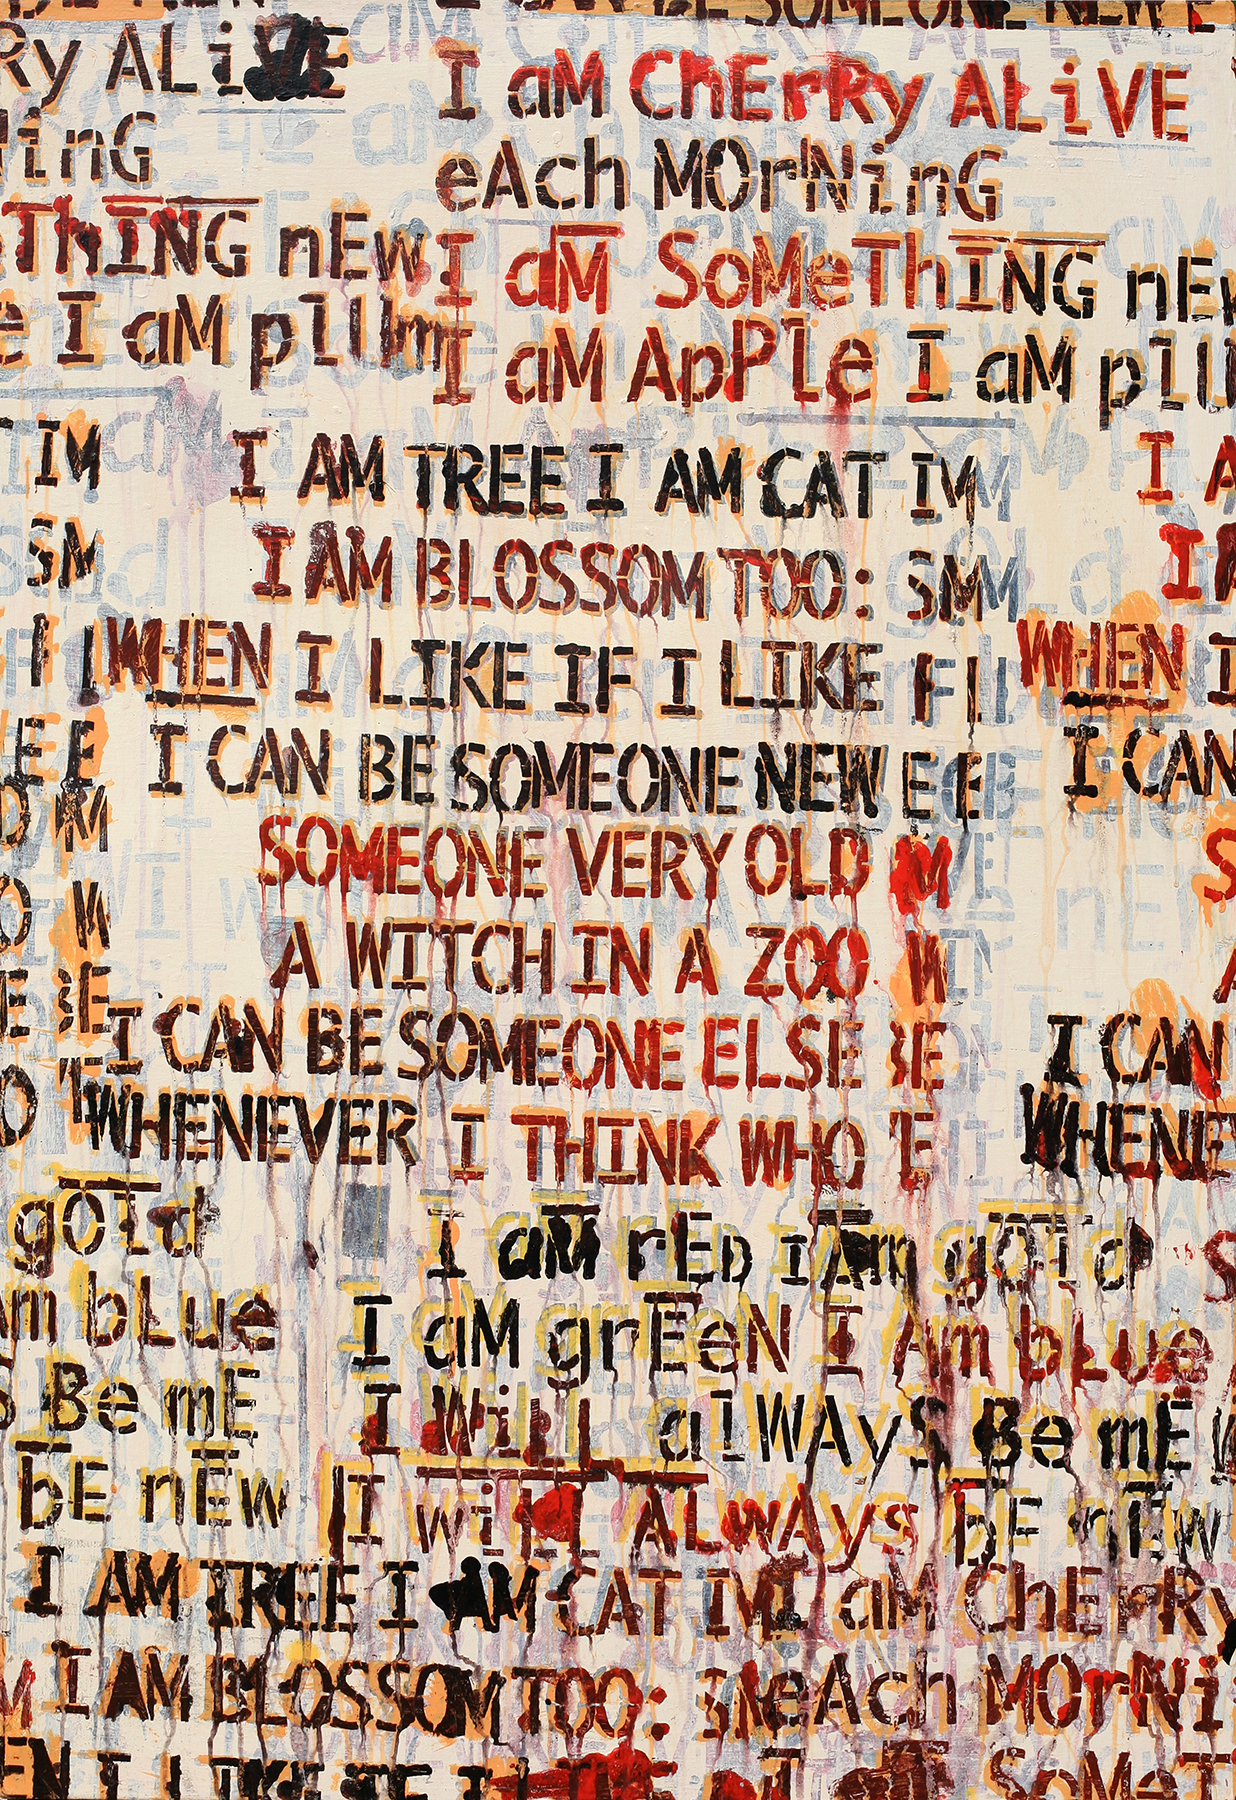 AN BE SOMEONE NEW E
Ry ALiVE I aM ChERRy ALiVE
ninG eAch MOrNinG
ThING nEw I aM SoMeThING nEw
e I aM plUm I aM ApPLe I aM plU
IM I AM TREE I AM CAT IM I A
SM I AM BLOSSOM TOO: SMM I A
F | WHEN I LIKE IF I LIKE F | WHEN I
EE I CAN BE SOMEONE NEW E E I CAN
M SOMEONE VERY OLD M S
O W A WITCH IN A ZOO W A
E BE I CAN BE SOMEONE ELSE BE I CAN
O WHENEVER I THINK WHO E WHENE
gOLd I aM rED I Am gOLd S
m bLue I aM grEeN I Am bLue
S Be mE I WiLL alWAyS Be mE W
bE nEw I wiLL ALwAys bE nEw
I AM TREE I AM CAT IM I aM ChERRy
M I AM BLOSSOM TOO: SM eAch MOrNi
EN I LIKE IF I LIKE SoMeT